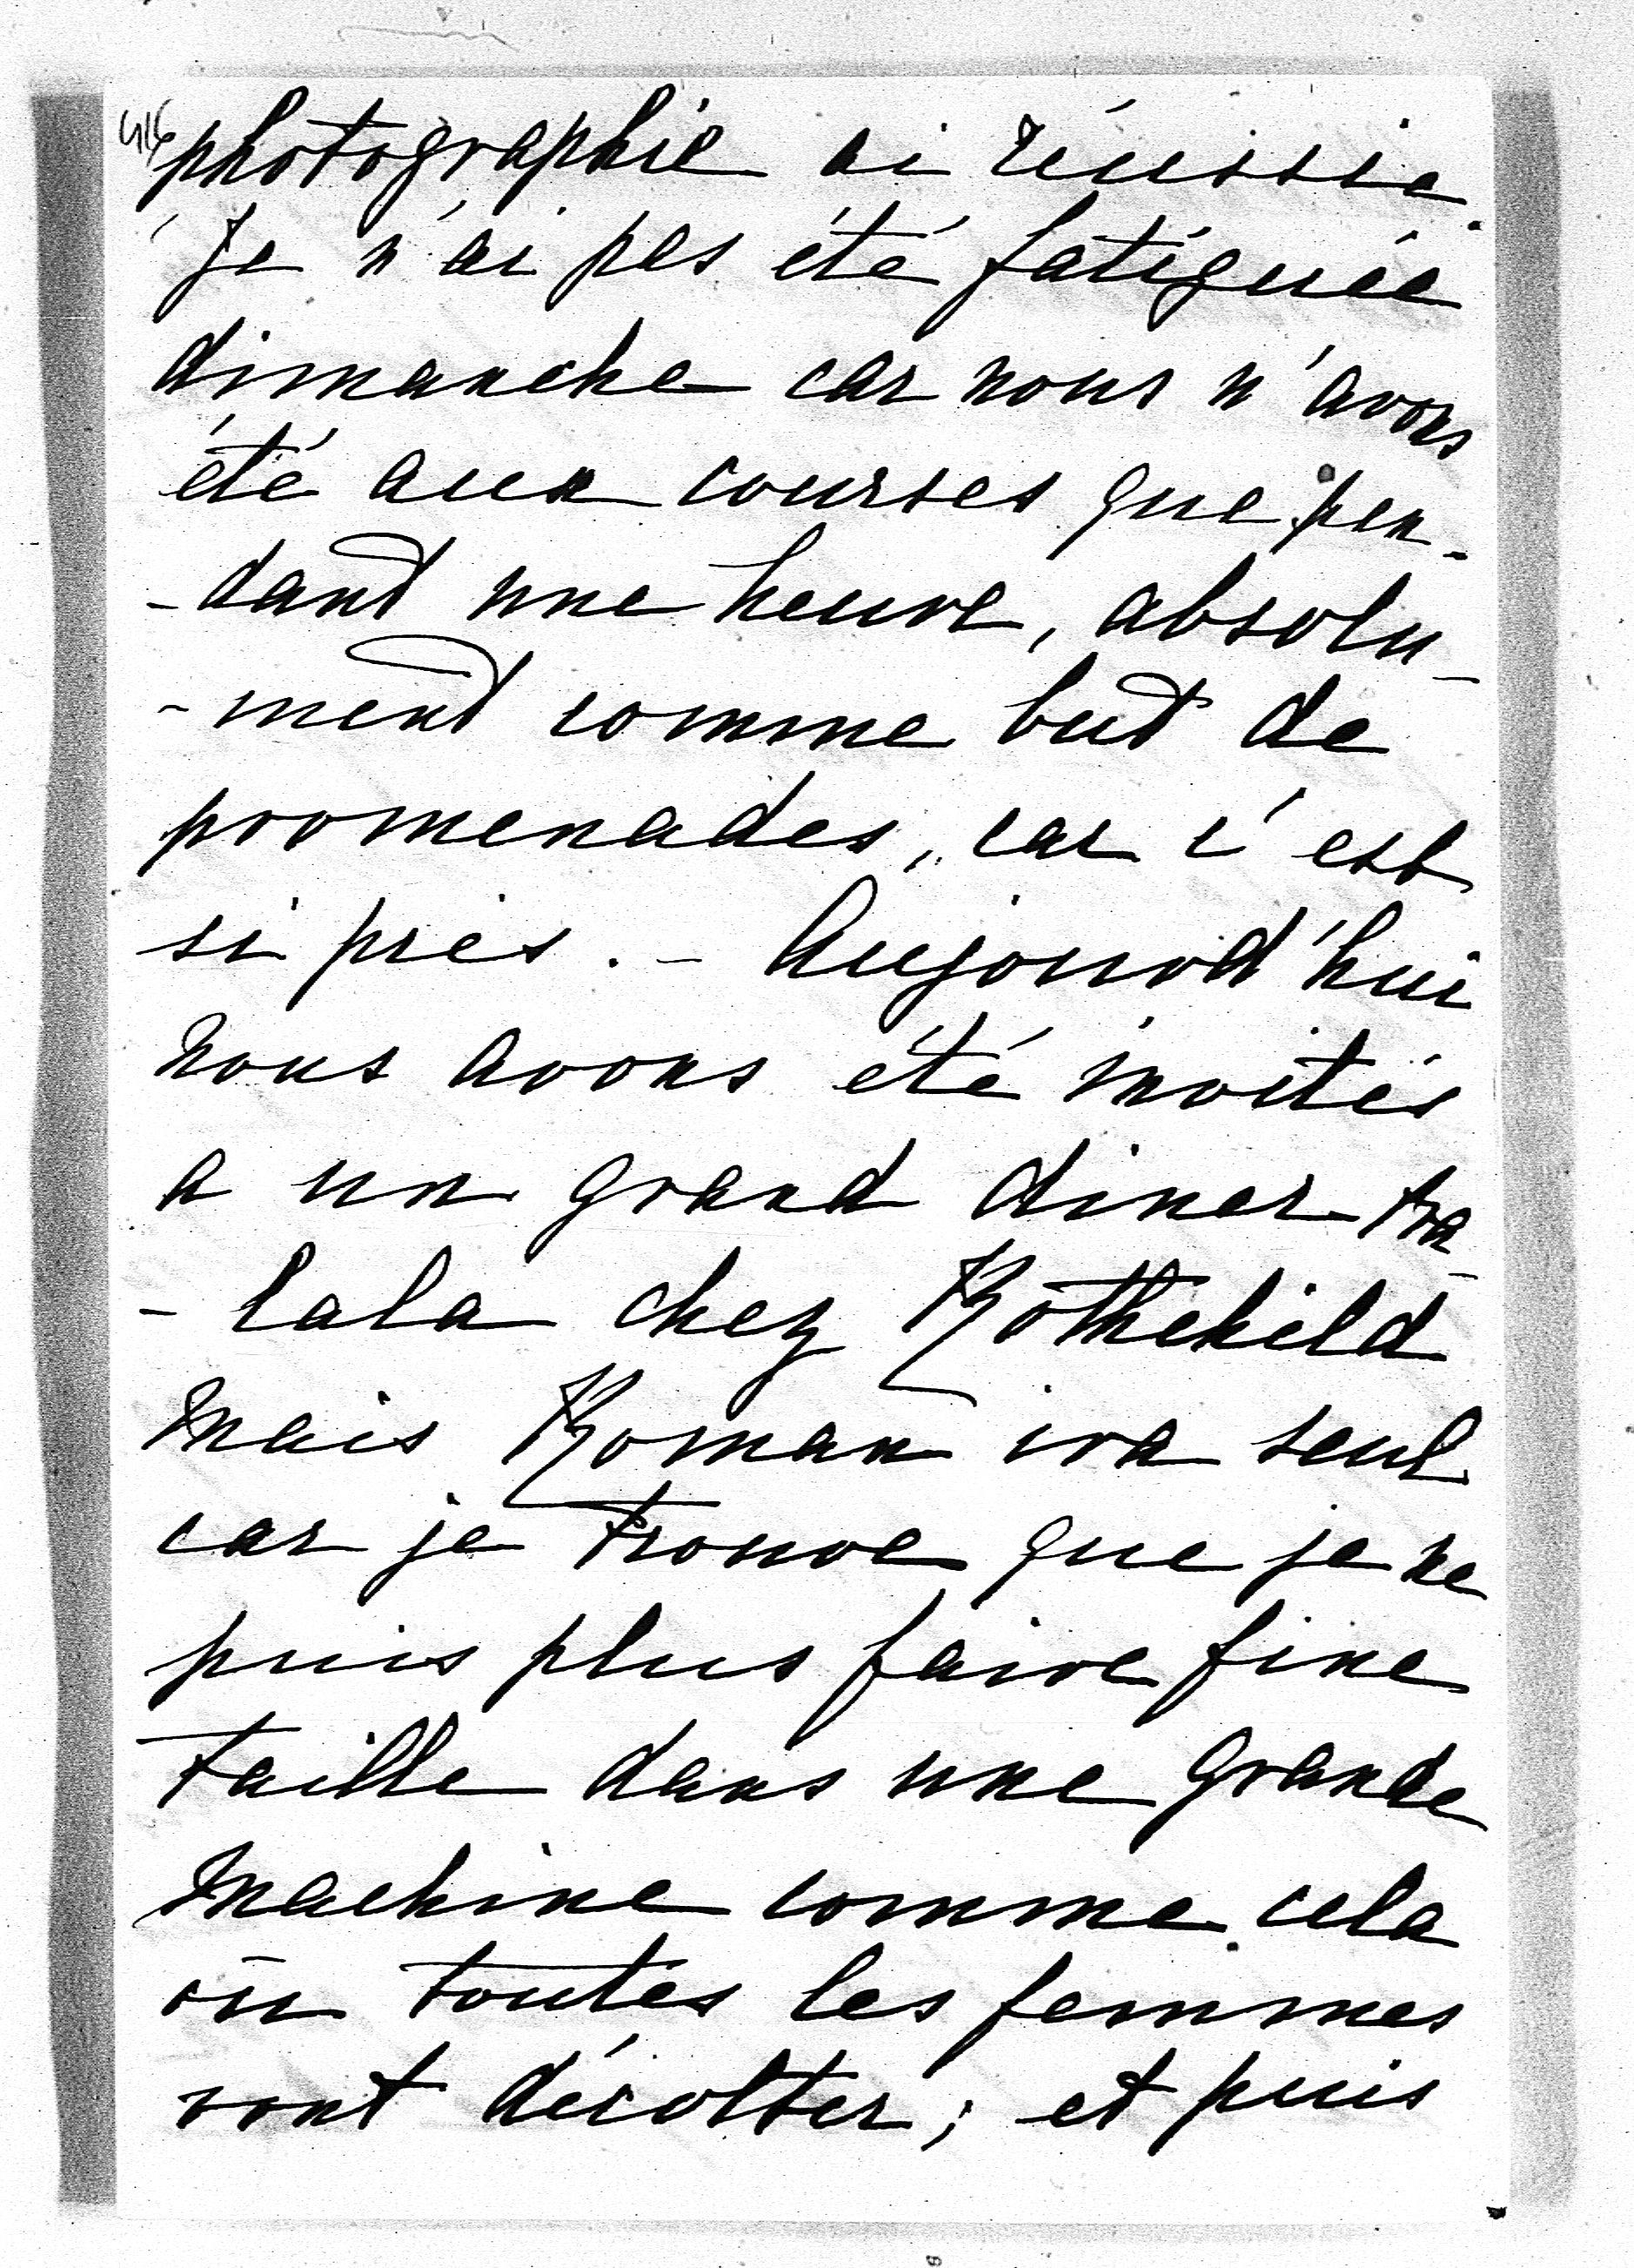 416
photographie si réussie.
Je n'ai pas été fatiguée
dimanche car nous n'avons
été aux courses que pen-
-dant une heure, absolu-
-ment comme but de
promenades, car c'est
si près. - Aujourd'hui
nous avons été invités
a un grand diner tra-
-lala chez Rothchild
mais Roman ira seul
car je trouve que je ne
puis plus faire fine
taille dans une grande
machine comme cela
où toutes les femmes
sont décolter; et puis